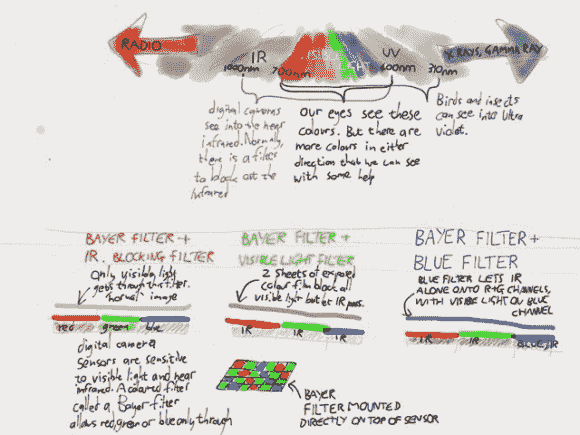 RADIO
IR
VISIBLE LIGHT
UV
X RAYS, GAMMA RAY
1000nm
700nm
400nm
310nm
digital cameras
see into the near
infrared. Normally,
there is a filter
to block out the
infrared
Our eyes see these
colours. But there are
more colours in either
direction that we can see
with some help
Birds and insects
can see into Ultra
violet.
BAYER FILTER +
IR. BLOCKING FILTER
Only visible light
gets through this filter.
normal image
red
green
blue
digital camera
sensors are sensitive
to visible light and near
infrared. A colored filter
called a Bayer filter
allows red, green or blue only through
BAYER FILTER +
VISIBLE LIGHT FILTER
2 sheets of exposed
colour film block all
visible light but let IR pass.
IR
IR
IR
BAYER
FILTER MOUNTED
DIRECTLY ON TOP OF SENSOR
BAYER FILTER +
BLUE FILTER
BLUE FILTER LETS IR
ALONE ONTO R+G CHANNELS,
WITH VISIBLE LIGHT ON BLUE
CHANNEL
IR
IR
BLUE+IR